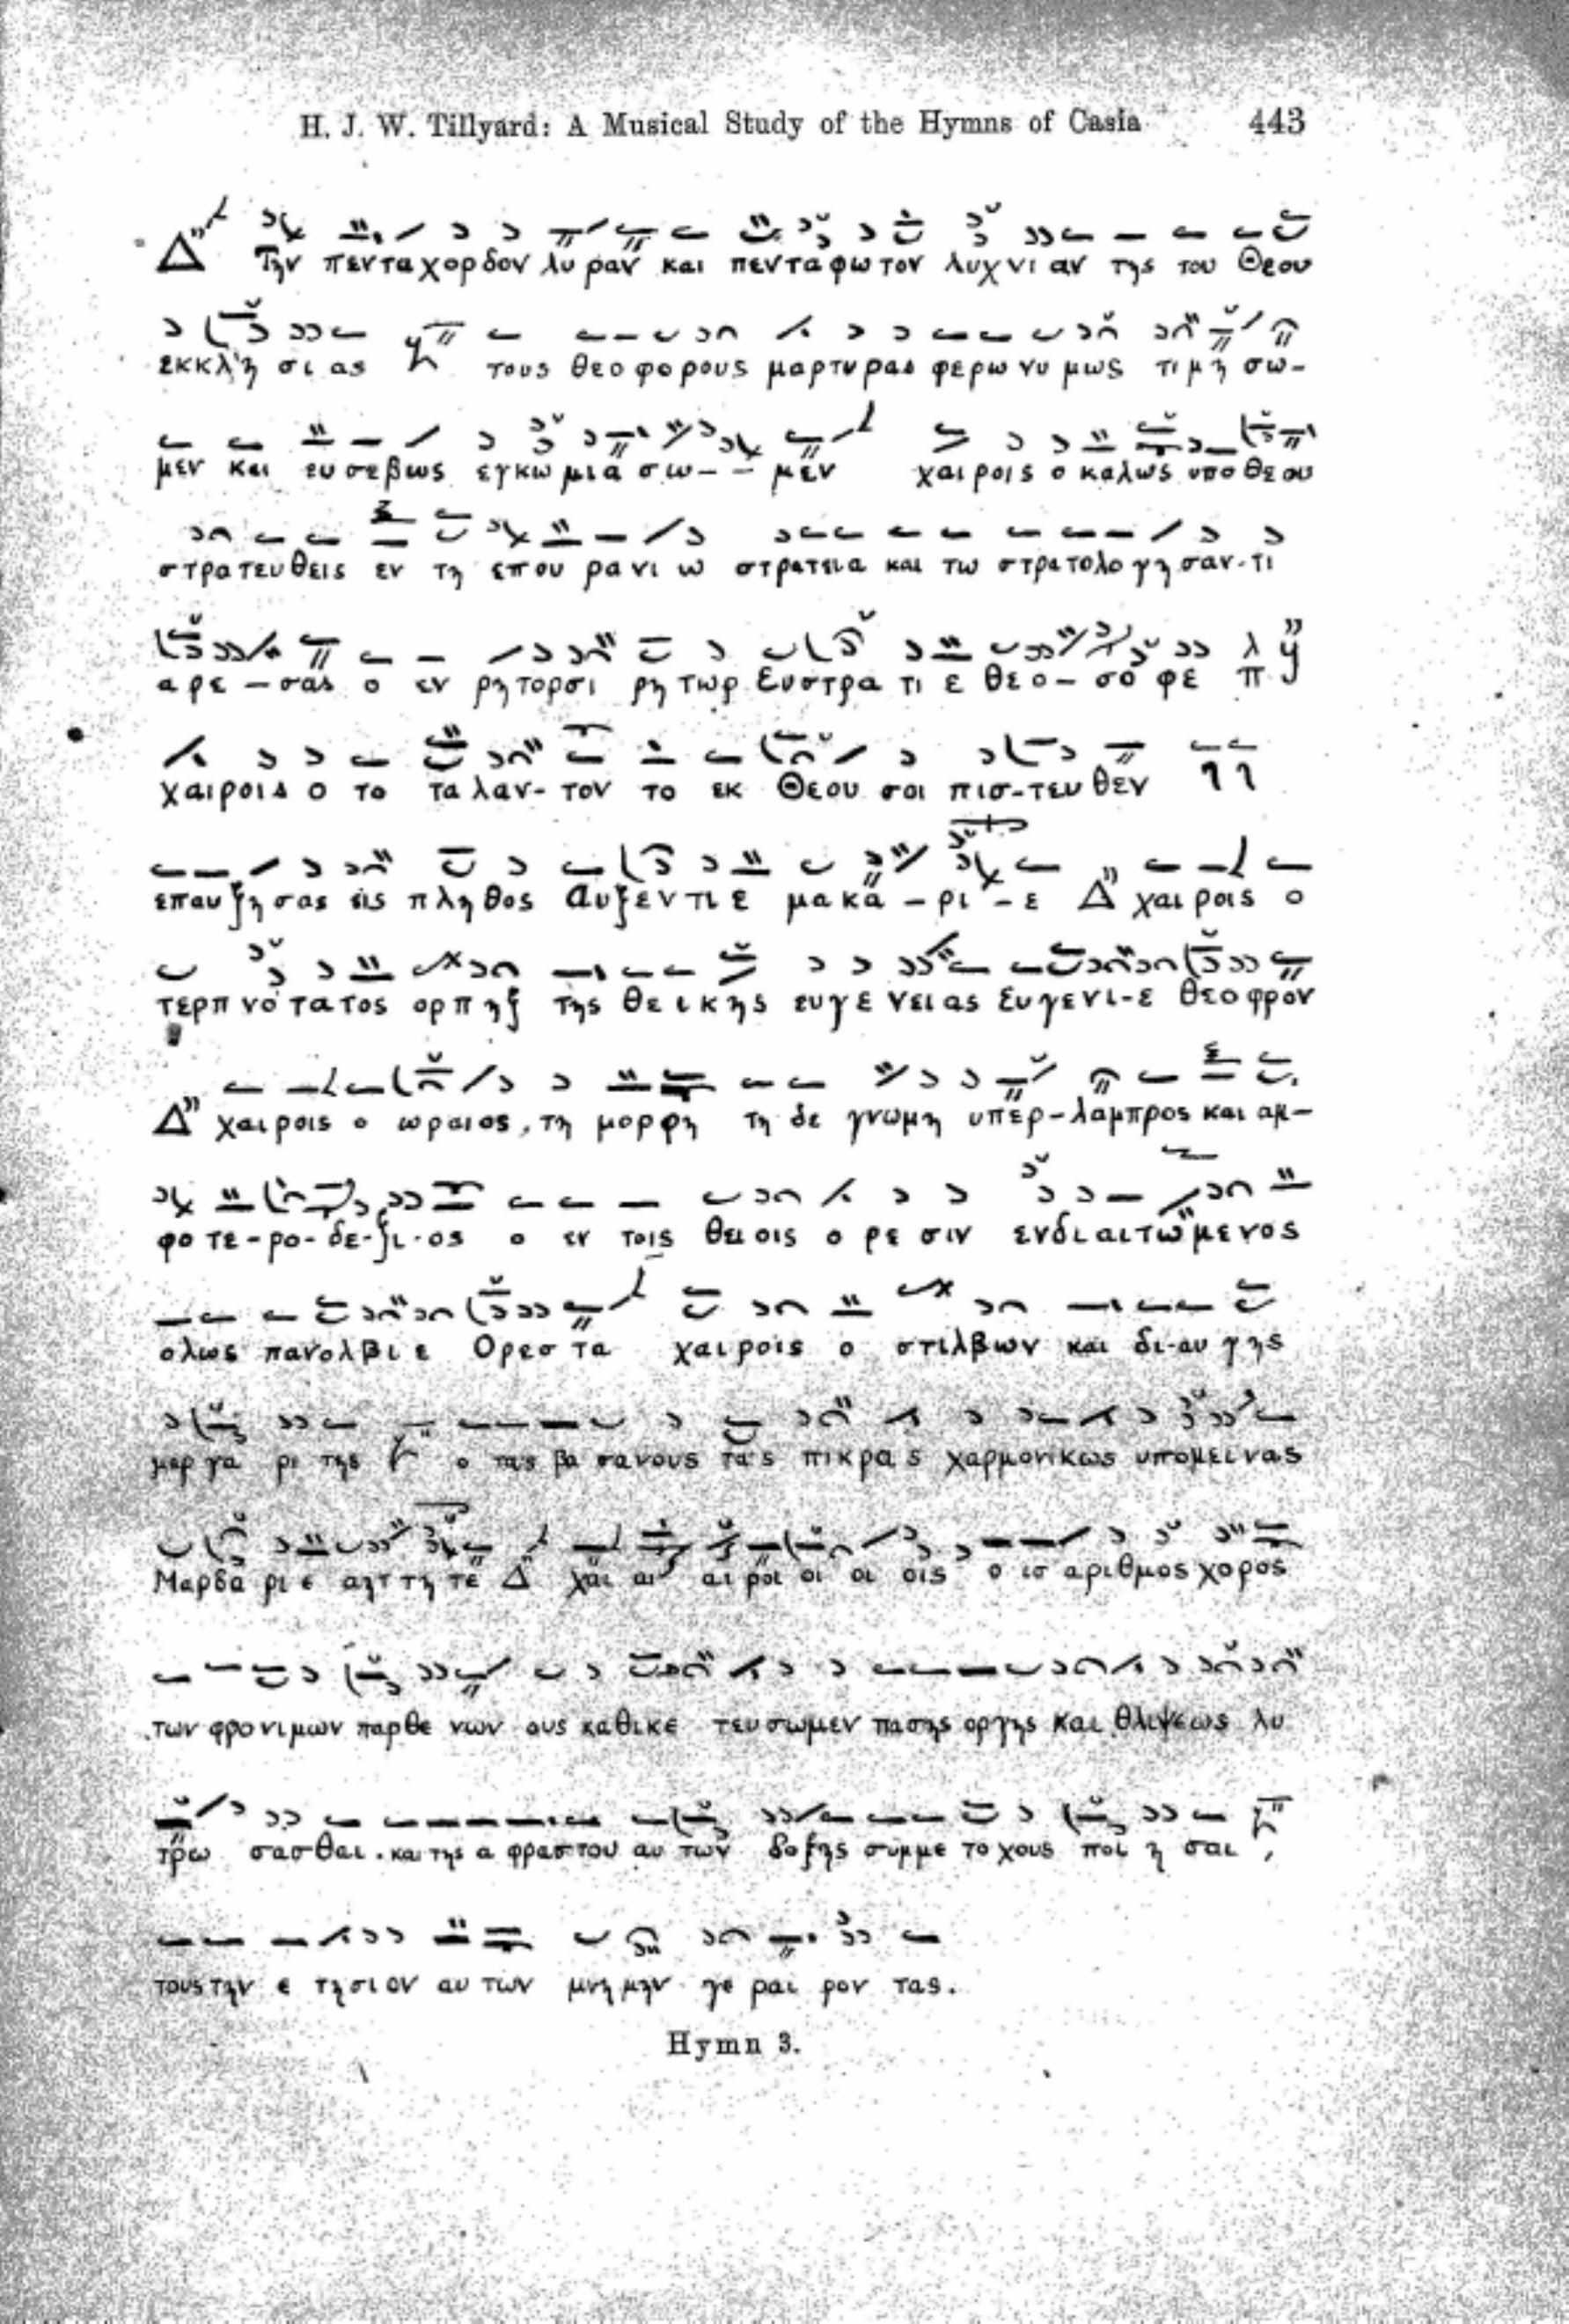 H. J. W. Tillyard: A Musical Study of the Hymns of Casia 443
Δ Την πενταχορδον λυραν και πενταφωτον λυχνιαν της του Θεου
εκκλησιας τους θεοφορους μαρτυρας φερωνυμως τιμησω-
μεν και ευσεβως εγκωμιασω-- μεν χαιροις ο καλως υπο θεου
στρατευθεις εν τη επουρανιω στρατεια και τω στρατολογησαν-τι
αρε-σας ο εν ρητορσι ρητωρ Ευστρατιε θεο-σοφε π
χαιροις ο το ταλαν-τον το εκ Θεου σοι πισ-τευθεν
επαυξησας εις πληθος Αυξεντιε μακα-ρι-ε Δ χαιροις ο
τερπνοτατος ορπηξ της θεικης ευγενειας Ευγενι-ε θεοφρον
Δ χαιροις ο ωραιος, τη μορφη τη δε γνωμη υπερ-λαμπρος και αμ-
φοτε-ρο-δε-ξι-ος ο εν τοις θειοις ορεσιν ενδιαιτωμενος
ολως πανολβιε Ορεστα χαιροις ο στιλβων και δι-αυγης
μαργαριτης ο τας βασανους τας πικρας χαρμονικως υπομεινας
Μαρδαριε αηττητε Δ χαι αι αι ροι οι οι οις ο ισαριθμος χορος
των φρονιμων παρθενων ους καθικετευσωμεν πασης οργης και θλιψεως λυ
τρωσασθαι. και της αφραστου αυτων δοξης συμμετοχους ποιησαι,
τους την ετησιον αυτων μνημην γεραιροντας.
Hymn 3.